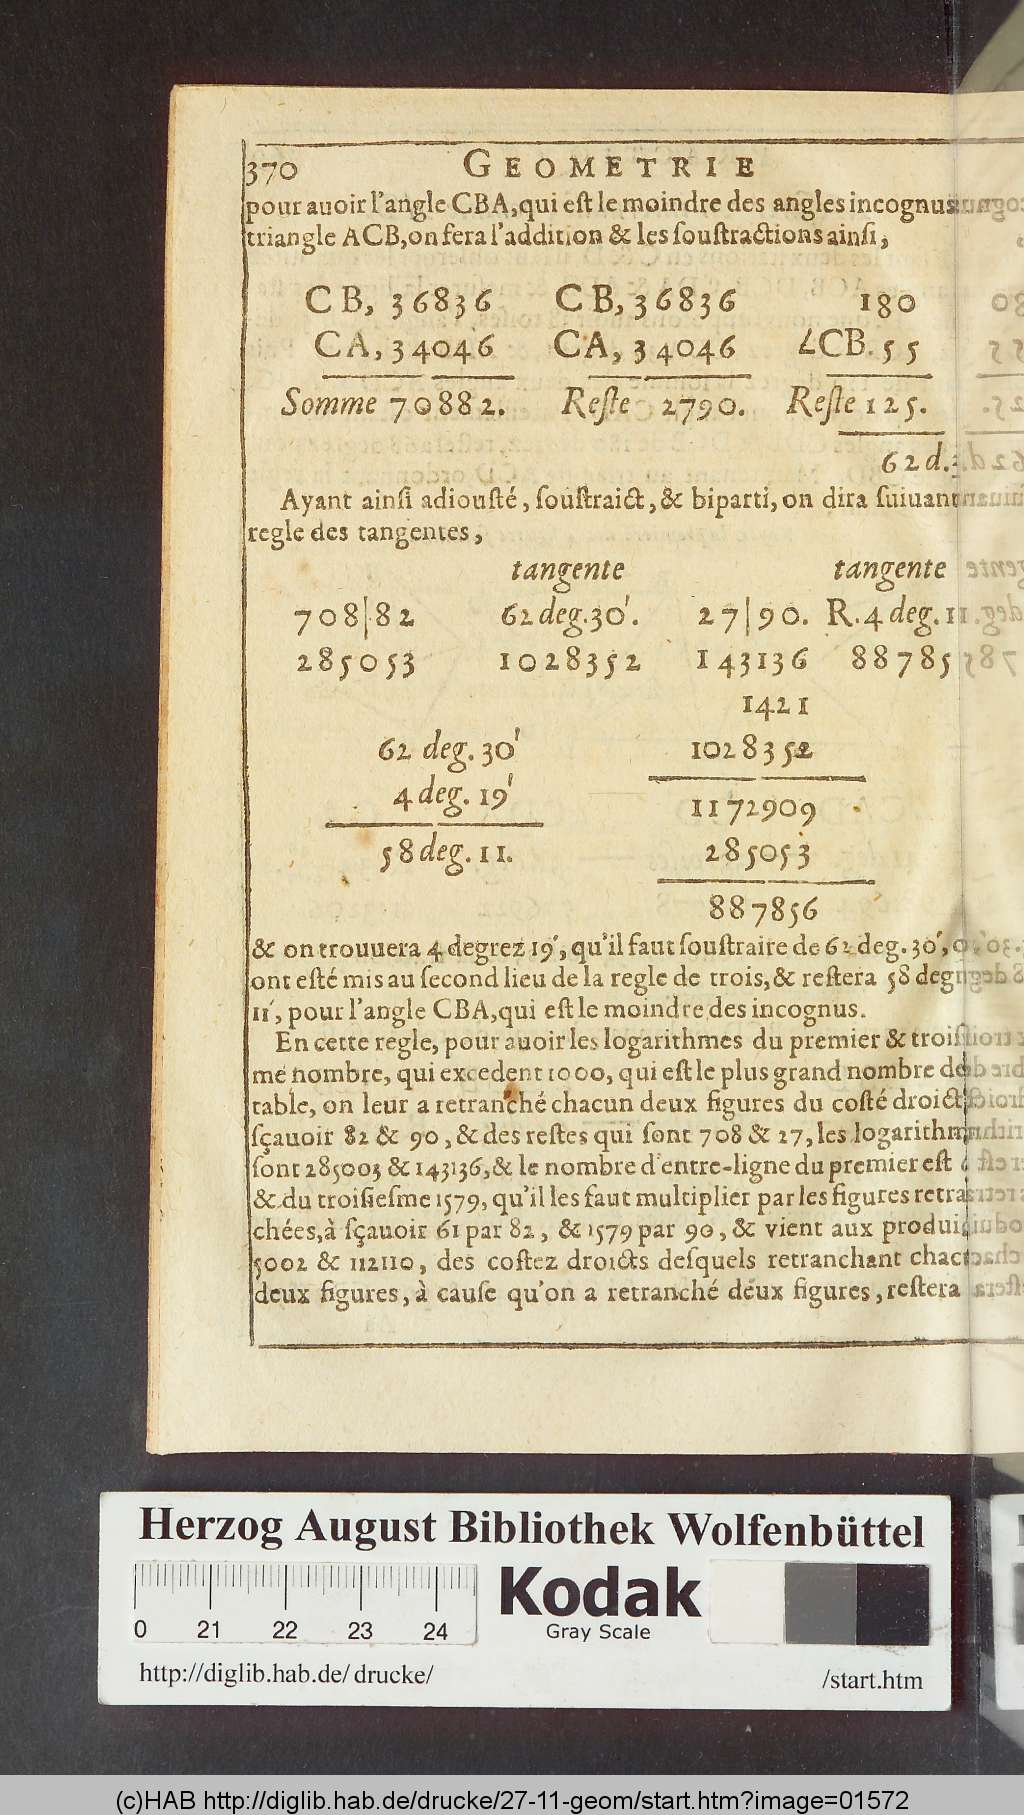 370 GEOMETRIE
pour auoir l'angle CBA, qui eſt le moindre des angles incognus
triangle ACB, on fera l'addition & les ſouſtractions ainſi,
CB, 36836 CB, 36836 180
CA, 34046 CA, 34046 ∠CB. 55
Somme 70882. Reſte 2790. Reſte 125.
62 d.
Ayant ainſi adiouſté, ſouſtraict, & biparti, on dira ſuiuant
regle des tangentes,
tangente tangente
708|82 62 deg. 30'. 27|90. R. 4 deg. 11
285053 1028352 143136 88785
1421
62 deg. 30' 1028352
4 deg. 19' 1172909
58 deg. 11. 285053
887856
& on trouuera 4 degrez 19', qu'il faut ſouſtraire de 62 deg. 30',
ont eſté mis au ſecond lieu de la regle de trois, & reſtera 58 deg
11', pour l'angle CBA, qui eſt le moindre des incognus.
En cette regle, pour auoir les logarithmes du premier & troiſ
me nombre, qui excedent 1000, qui eſt le plus grand nombre de
table, on leur a retranché chacun deux figures du coſté droict
ſçauoir 82 & 90, & des reſtes qui ſont 708 & 27, les logarithm
ſont 285003 & 143136, & le nombre d'entre-ligne du premier eſt
& du troiſieſme 1579, qu'il les faut multiplier par les figures retra
chées, à ſçauoir 61 par 82, & 1579 par 90, & vient aux produi
5002 & 112110, des coſtez droicts deſquels retranchant chac
deux figures, à cauſe qu'on a retranché deux figures, reſtera
Herzog August Bibliothek Wolfenbüttel
Kodak
Gray Scale
0 21 22 23 24
http://diglib.hab.de/drucke/ /start.htm
(c)HAB http://diglib.hab.de/drucke/27-11-geom/start.htm?image=01572